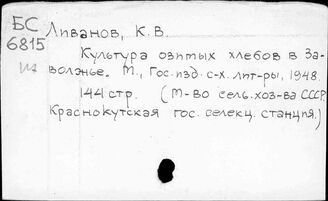 БС Ливанов, К.В.
6815
Культура озимых хлебов в За-
волжье. М., Гос. изд. с-х. лит-ры, 1948.
144 стр. (М-во сель. хоз-ва СССР.
Краснокутская гос. селекц. станция.)